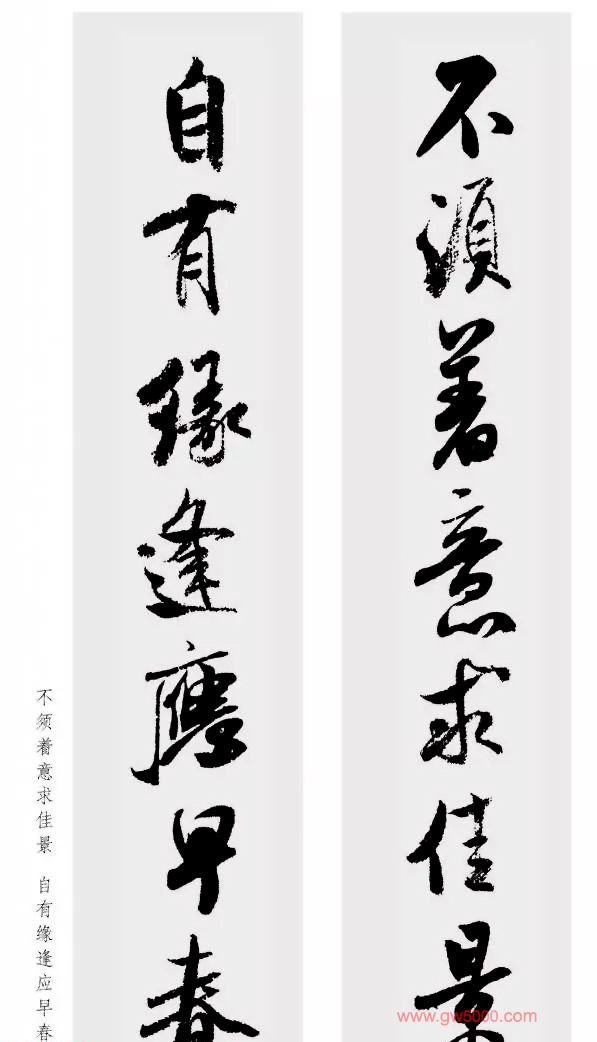 不須着意求佳景
自有緣逢應早春
不须着意求佳景 自有缘逢应早春
www.gw5000.com